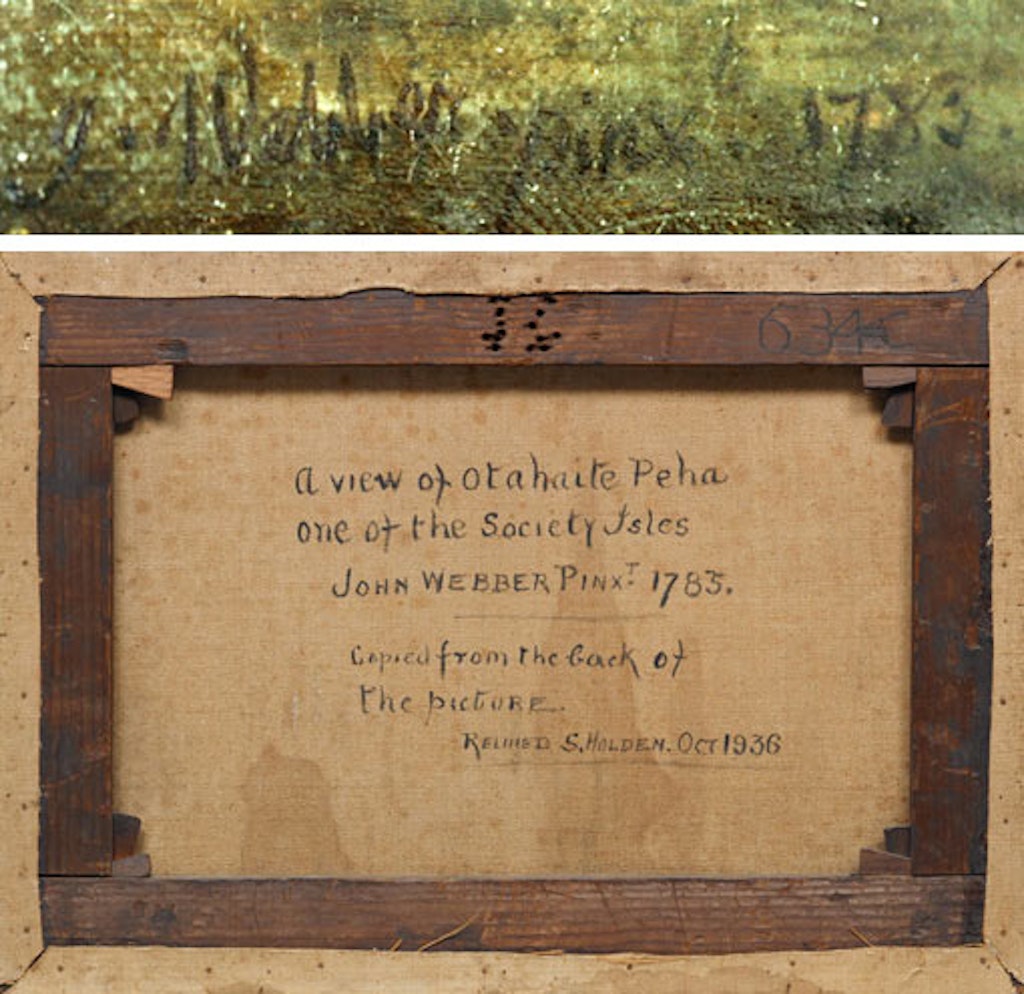 J. Webber pinx 1785.
A view of Otahaite Peha
one of the Society Isles
JOHN WEBBER PINX.T 1785.
Copied from the back of
the picture.
RELINED S. HOLDEN. OCT 1936